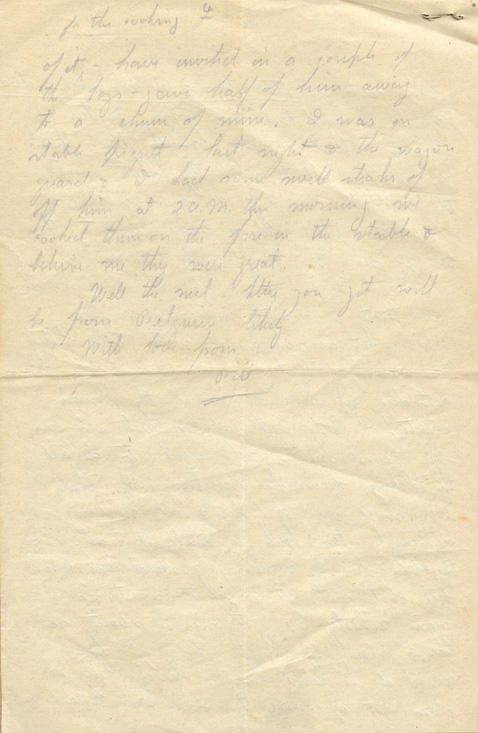 for the cooking 4
of it, - have invited in a couple of
the boys - gave half of him away
to a chum of mine. I was on
stable picquet last night & the wagon
guard & I had some swell steaks of
off him at 2 a.m. this morning - we
cooked them on the fire in the stable &
believe me they were great.
Well the next letter you get will
be from Belgium likely
With love from
Will